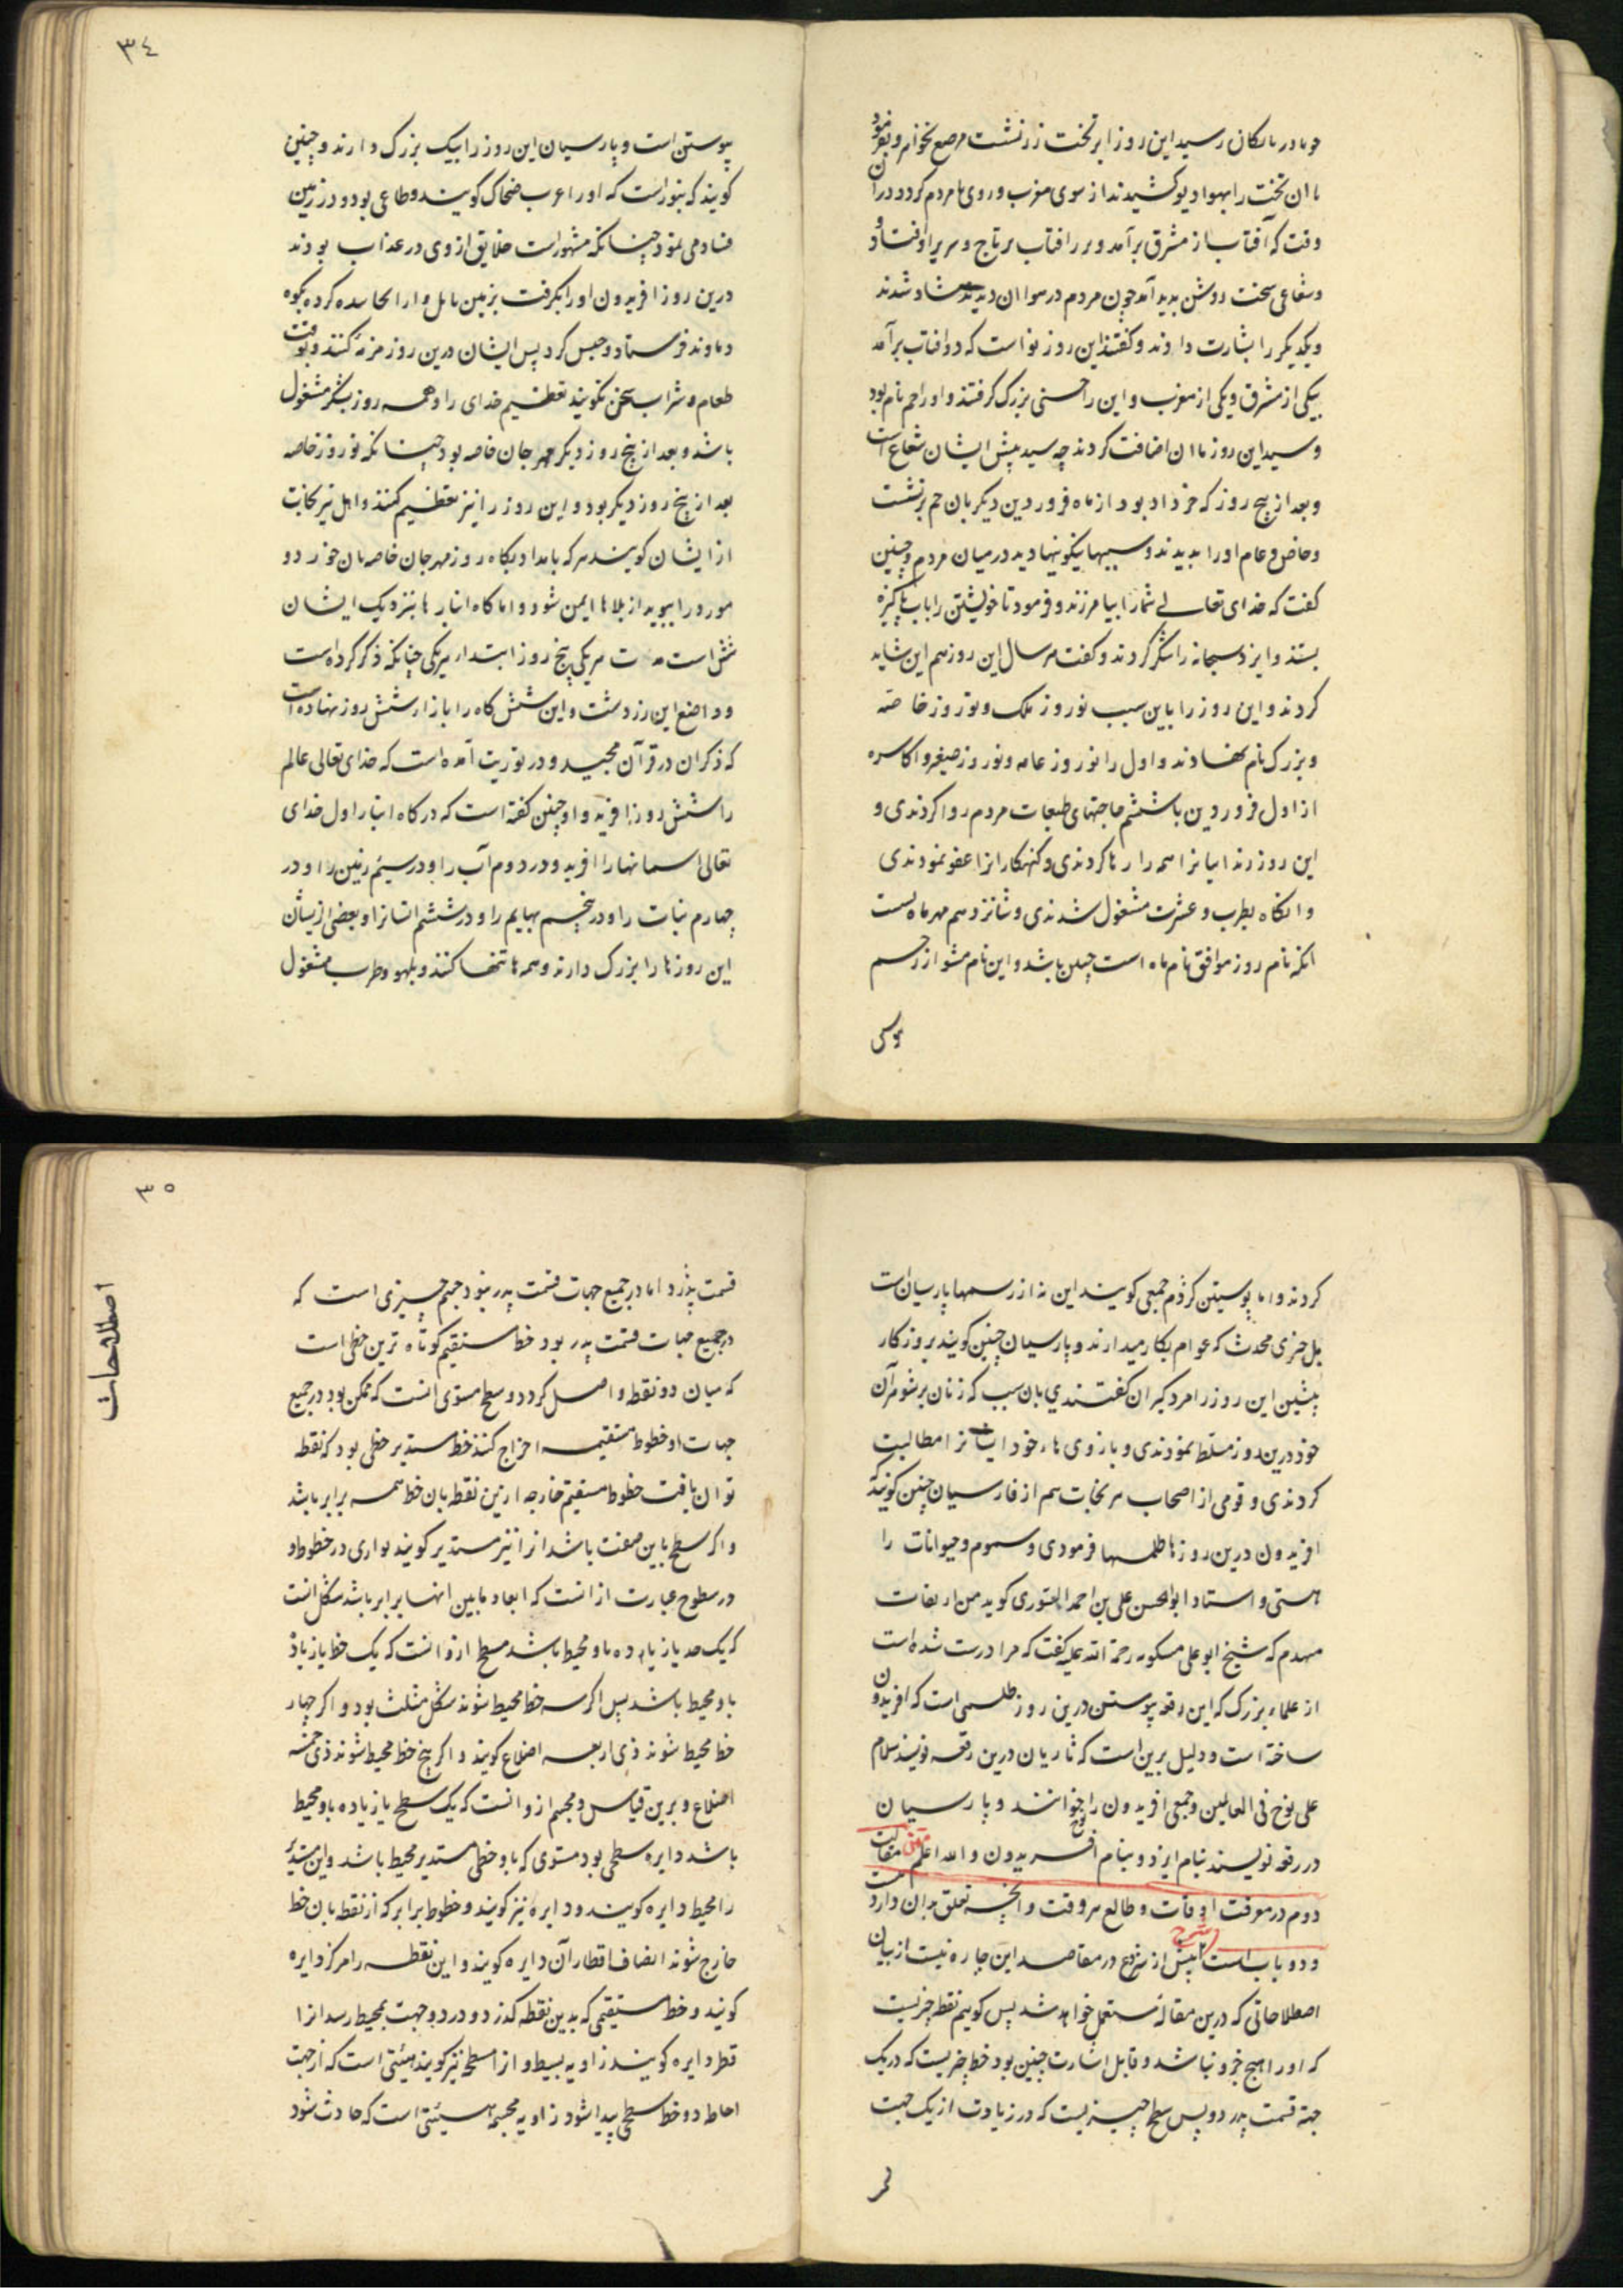 ٣٤
چو بادربایکان رسید این روز ابر تخت زر نشست مرصع بجواهر و بفرمود
تا ان تخت را بهوا دیو کشیدند از سوی مغرب و روی با مردم کرد و دران
وقت که آفتاب از مشرق برآمد و بر آفتاب بر تاج و سریر او افتاد و
و شعاعی سخت روشن بدید آمد چون مردم در هوا ان دیدند شاد شدند
و یکدیگر را بشارت دادند و گفتند این روز نو است که دو افتاب برآمد
یکی از مشرق و یکی از مغرب و این را جشنی بزرک گرفتند و او را جم نام بود
و شید این روز با ان اضافت کردند چه شید پیش ایشان شعاع است
و بعد از پنج روز که خرداد بود از ماه فروردین دیگر بار جم بر نشست
و خاص و عام او را بدیدند و سیبها نیکو نهاد در میان مردم و چنین
گفت که خدای تعالی شما را بیامرزند و فرمود تا خویشتن را باب پاکیزه
بشتند و ایزد سبحانه را شکر کردند و گفت هر سال این روز هم این شاید
کردند و این روز را باین سبب نوروز ملک و نوروز خاصّه
و بزرک نام نهادند و اول را نوروز عامه و نوروز صغیر و اکاسره
از اول فروردین تا ششم حاجتهای طبقات مردم روا کردندی و
این روز زندانیانرا همه را رها کردندی و گنهکارانرا عفو نمودندی
و انگاه بطرب و عشرت مشغول شدندی و شانزدهم مهرماه است
انکه نام روز موافق نام ماه است جشن باشد و این نام مشتق از رسم
پوستن است و پارسیان این روز را نیک بزرک دارند و چنین
کویند که بیوراست که او را عرب ضحاک کویند و طاغی بود و در زمین
فساد می نمود چنانکه مشهورست خلایق از وی در عذاب بودند
درین روز افریدون او را بگرفت بزمین بابل و او را کرده بکوه
دماوند فرستاد و حبس کرد پس ایشان درین روز مزمه کنند و بوقت
طعام و شراب سخن نکویند تعظیم خدای را و همه روز بشکر مشغول
باشد و بعد از پنج روز دیکر مهرجان خاصه بود چنانکه نوروز خاصه
بعد از پنج روز دیکر بود و این روز را نیز تعظیم کنند و اهل نیرنجات
از ایشان کویند هر که بامداد پکاه روز مهرجان خاصه نان خورد و
مورد را ببوید از بلاها ایمن شود و اما کاه انبارها بنزدیک ایشان
شش است هر یکی پنج روز ابتدا هر یکی چنانکه ذکر کرده است
و واضع این زردشت و این شش کاه را بازار شش روز نهاده است
که ذکر ان در قرآن مجید و در توریت آمده است که خدای تعالی عالم
را شش روز افرید و او چنین گفته است که در کاه انبار اول خدای
تعالی آسمانها را افرید و در دوم آب را و در سیم زمین را و در
چهارم نبات را و در پنجم بهایم را و در ششم انسانرا و بعضی ازیشان
این روزها را بزرک دارند و همه ها تنها کنند و بلهو و طرب مشغول
٣٥
اصطلاحات
کردند و اما پوستین کژدم جمعی کویند این نه از رسمها پارسیان است
بل چیزی محدث که عوام بکار میدارند و پارسیان چنین کویند بروزکار
پیشین این روز را مردکیران گفتندی بان سبب که زنان بر شوهران
خود درین روز مسلط نمودندی و بازوی ها خود ایشانرا مطالبت
کردندی و قومی از اصحاب نیرنجات هم از فارسیان چنین کویند که
افریدون درین روزها طلسمها فرمودی و سموم و حیوانات را
بستی و استاد ابوالحسن علی بن احمد کوید من از ثقات
شنیدم که شیخ ابوعلی مسکویه رحمة الله علیه گفت که مرا درست شده است
از علماء بزرک که این رقعه پوستن درین روز طلسمی است که افریدون
ساخته است و دلیل برین است که تازیان درین رقعه نویسند سلام
علی نوح فی العالمین و جمعی افریدون را نوح خوانند و پارسیان
در رقعه نویسند بنام ایزد و بنام افریدون و الله اعلم متن مقالت
دوم در معرفت اوقات و طالع هر وقت و آنچه تعلق بدان دارد
و دو باب است شرح پیش از شروع در مقاصد این چاره نیست از بیان
اصطلاحاتی که درین مقاله مستعمل خواهد شد پس کوییم نقطه چیزیست
که او را هیچ جزو نباشد و قابل اشارت حسی بود خط چیزیست که در یک
جهة قسمت پذیرد و پس سطح چیزیست که در زیادت از یک جهت
قسمت پذیرد اما در جمیع جهات قسمت پذیر نبود جسم چیزی است که
در جمیع جهات قسمت پذیر بود خط مستقیم کوتاه ترین خطی است
که میان دو نقطه واصل کردد و سطح مستوی انست که ممکن بود در جمیع
جهات او خطوط مستقیمه اخراج کنند خط مستدیر خطی بود که نقطه
توان یافت خطوط مستقیم خارجه از ین نقطه بان خط همه برابر باشد
و اکر سطح باین صفت باشد انرا نیز مستدیر کویند توازی در خطوط و
در سطوح عبارت از انست که ابعاد مابین انها برابر باشد شکل انست
که یک حد یا زیاده باو محیط باشد مسطح ازو انست که یک خط یا زیاده
باو محیط باشد پس اکر سه خط محیط شوند شکل مثلث بود و اکر چهار
خط محیط شوند ذی اربعه اضلاع کویند و اکر پنج خط محیط شوند ذی خمسه
اضلاع و برین قیاس و مجسم ازو انست که یک سطح یا زیاده باو محیط
باشد دایره سطحی بود مستوی که باو خطی مستدیر محیط باشد و این مستدیر
را محیط دایره کویند و دایره نیز کویند و خطوط برابر که از نقطه بان خط
خارج شوند انصاف اقطار آن دایره کویند و این نقطه را مرکز دایره
کویند و خط مستقیمی که بدین نقطه گذرد و در دو جهت بمحیط رسد انرا
قطر دایره کویند زاویه بسیط و انرا مسطح نیز کویند هیئتی است که از جهت
احاطه دو خط سطحی پیدا شود زاویه مجسمه هیئتی است که حادث شود